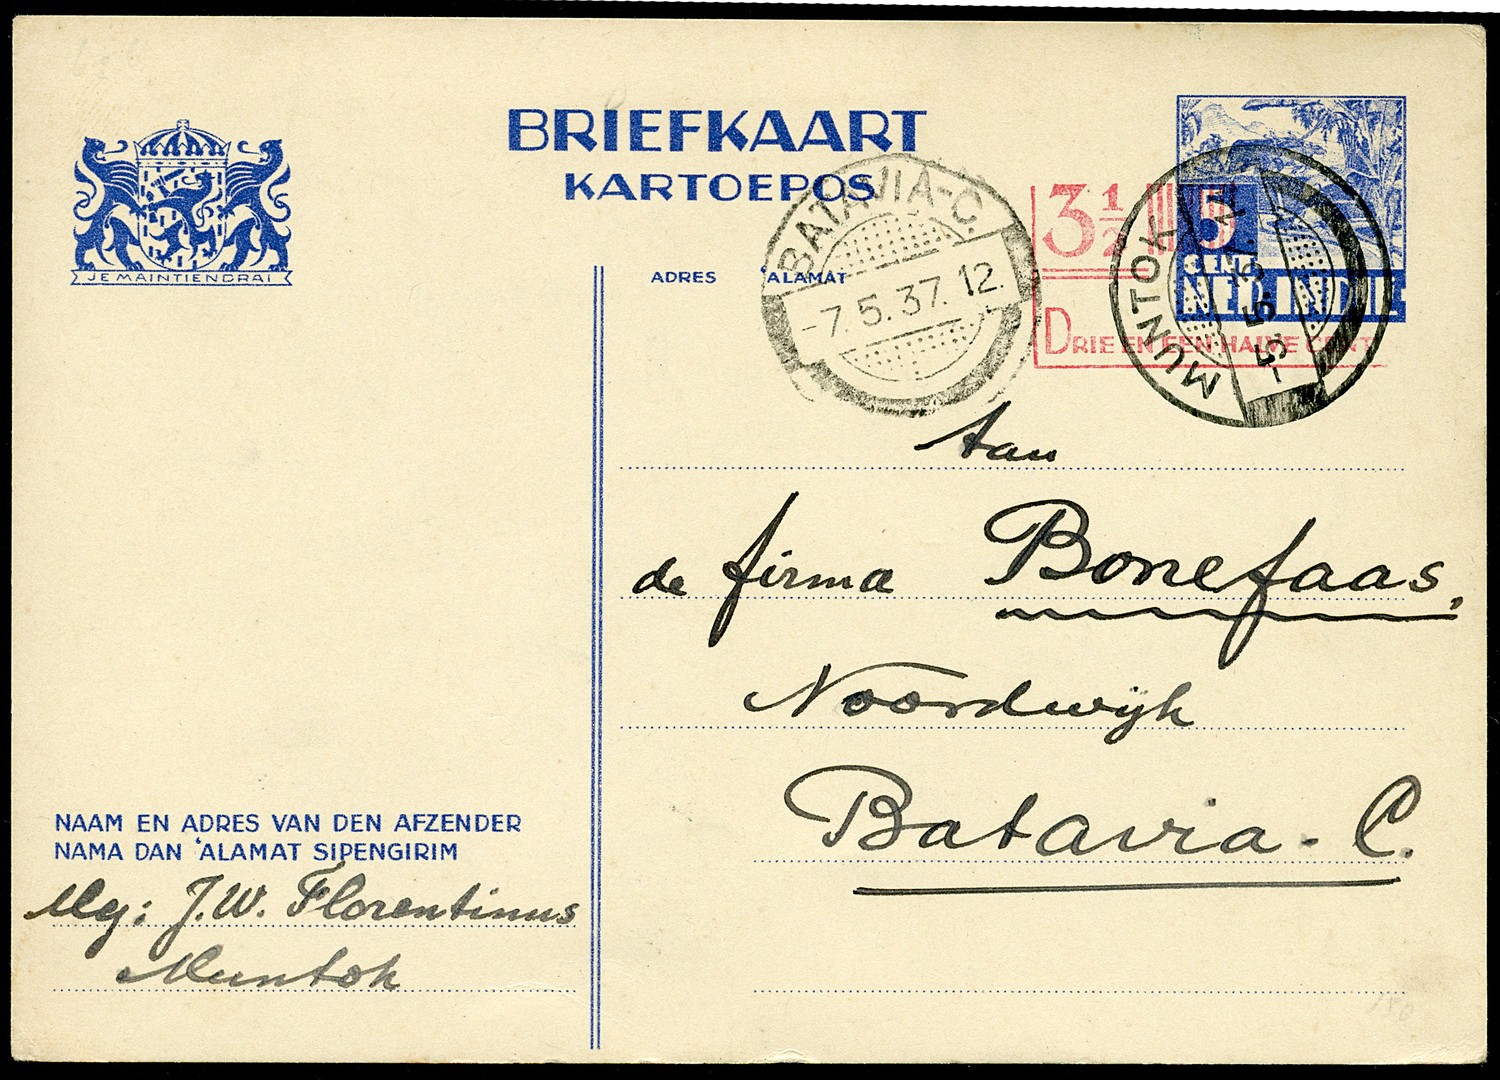 BRIEFKAART
KARTOEPOS
JE MAINTIENDRAI
BATAVIA-C.
-7.5.37.12.
3½
5
CENT
NED. INDIE
DRIE EN EEN HALVE CENT
MUNTOK
-5.5.37.12
ADRES 'ALAMAT
Aan
de firma Bonefaas,
Noordwijk
Batavia-C.
NAAM EN ADRES VAN DEN AFZENDER
NAMA DAN 'ALAMAT SIPENGIRIM
Afg: J.W. Florentinus
Muntok